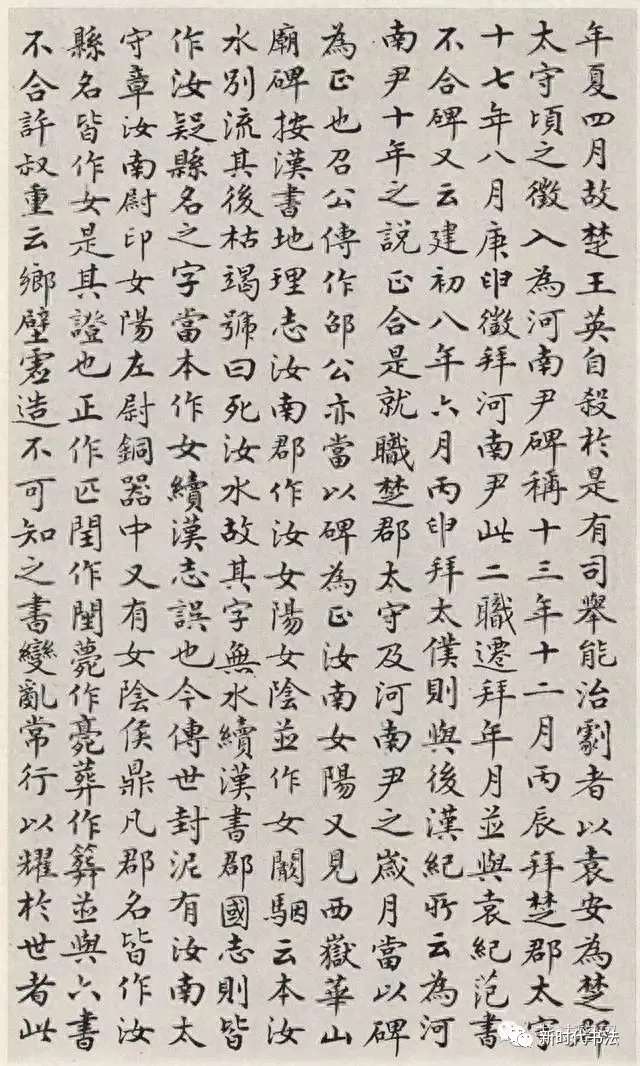 年夏四月故楚王英自殺於是有司舉能治劇者以袁安為楚郡
太守頃之徵入為河南尹碑稱十三年十二月丙辰拜楚郡太守
十七年八月庚申徵拜河南尹此二職遷拜年月並與袁紀范書
不合碑又云建初八年六月丙申拜太僕則與後漢紀所云為河
南尹十年之説正合是就職楚郡太守及河南尹之歲月當以碑
為正也召公傳作邵公亦當以碑為正汝南女陽又見西嶽華山
廟碑按漢書地理志汝南郡作汝女陽女陰並作女闞駰云本汝
水別流其後枯竭號曰死汝水故其字無水續漢書郡國志則皆
作汝疑縣名之字當本作女續漢志誤也今傳世封泥有汝南太
守章汝南尉印女陽左尉銅器中又有女陰侯鼎凡郡名皆作汝
縣名皆作女是其證也正作㱏閏作閠薨作薧葬作簳並與六書
不合許叔重云鄉壁虛造不可知之書變亂常行以耀於世者此
新时代书法